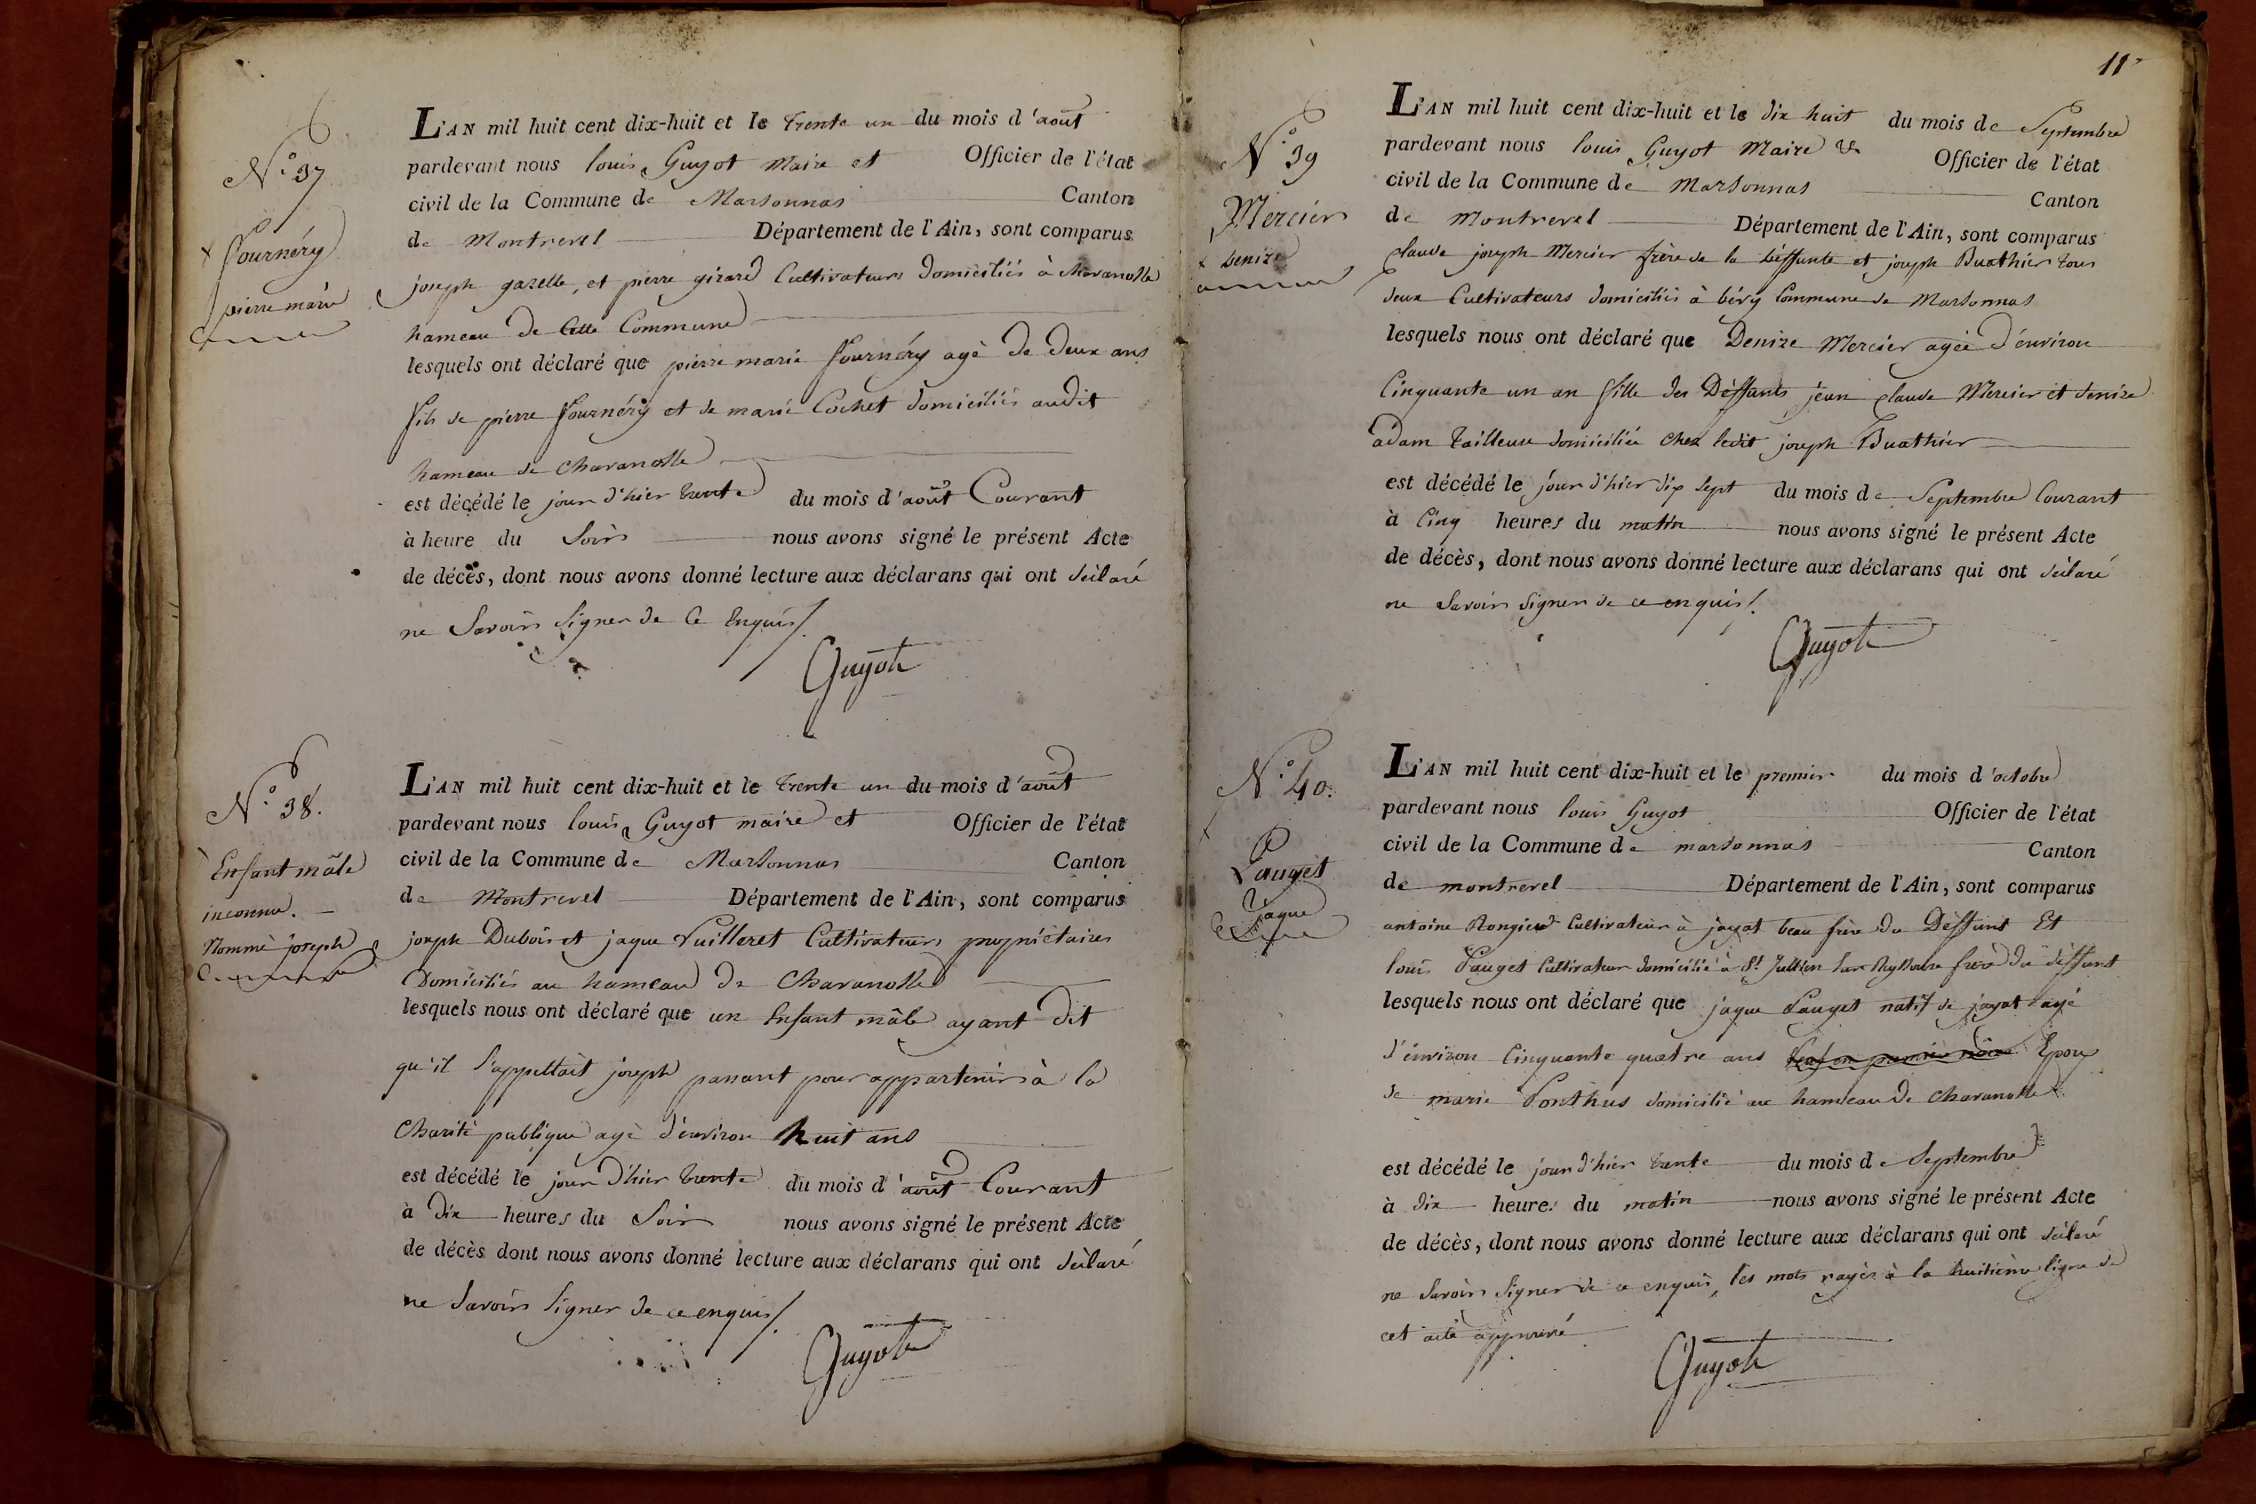 N.° 37
Fournéry
pierre marie
L'AN mil huit cent dix-huit et le trente un du mois d'août
pardevant nous louis Guyot Maire et Officier de l'état
civil de la Commune de Marsonnas Canton
de Montrevel Département de l'Ain, sont comparus
joseph gazelle, et pierre girard Cultivateurs domiciliés à Charanolle
hameau de Cette Commune
lesquels ont déclaré que pierre marie Fournéry agé de deux ans
fils de pierre Fournéry et de marie Cochet domiciliés audit
hameau de Charanolle
est décédé le jour d'hier trente du mois d'août Courant
à heure du Soir nous avons signé le présent Acte
de décès, dont nous avons donné lecture aux déclarans qui ont déclaré
ne Savoir Signer de Ce Enquis/.
Guyot
N.° 38.
Enfant mâle
inconnu.
Nommé joseph
L'AN mil huit cent dix-huit et le trente un du mois d'août
pardevant nous louis Guyot maire et Officier de l'état
civil de la Commune de Marsonnas Canton
de Montrevel Département de l'Ain, sont comparus
joseph Dubois et jaque Vuilleret Cultivateurs propriétaires
Domiciliés au hameau de Charanolle
lesquels nous ont déclaré que un Enfant mâle ayant dit
qu'il S'appellait joseph passant pour appartenir à la
Charité publique agé d'environ huit ans
est décédé le jour d'hier trente du mois d'août Courant
à Dix heures du Soir nous avons signé le présent Acte
de décès dont nous avons donné lecture aux déclarans qui ont déclaré
ne Savoir Signer de ce enquis/.
Guyot
11
N.° 39
Mercier
denize
L'AN mil huit cent dix-huit et le dix huit du mois de Septembre
pardevant nous louis Guyot Maire & Officier de l'état
civil de la Commune de Marsonnas Canton
de Montrevel Département de l'Ain, sont comparus
claude joseph Mercier frère de la deffunte et joseph Buathier tous
deux Cultivateurs domiciliés à béry Commune de Marsonnas
lesquels nous ont déclaré que Denize Mercier agée d'environ
Cinquante un an fille des Deffunts jean claude Mercier et denize
adam tailleuse domiciliée chez ledit joseph Buathier
est décédé le jour d'hier dix sept du mois de Septembre Courant
à Cinq heures du matin nous avons signé le présent Acte
de décès, dont nous avons donné lecture aux déclarans qui ont déclaré
ne Savoir Signer de ce enquis/.
Guyot
N.° 40.
Pauget
jaque
L'AN mil huit cent dix-huit et le premier du mois d'octobre
pardevant nous louis Guyot Officier de l'état
civil de la Commune de marsonnas Canton
de montrevel Département de l'Ain, sont comparus
antoine Rongier Cultivateur à jayat beau frère du Deffunt Et
louis Pauget Cultivateur domicilié à St. Jullien Sur Reyssouse frère du deffunt
lesquels nous ont déclaré que jaque Pauget natif de jayat agé
d'environ Cinquante quatre ans Epoux
de marie Ponthus domicilié au hameau de Charanolle
est décédé le jour d'hier trente du mois de Septembre
à dix heures du matin nous avons signé le présent Acte
de décès, dont nous avons donné lecture aux déclarans qui ont déclaré
ne Savoir Signer de ce enquis, les mots rayés à la huitième ligne de
cet acte approuvé
Guyot